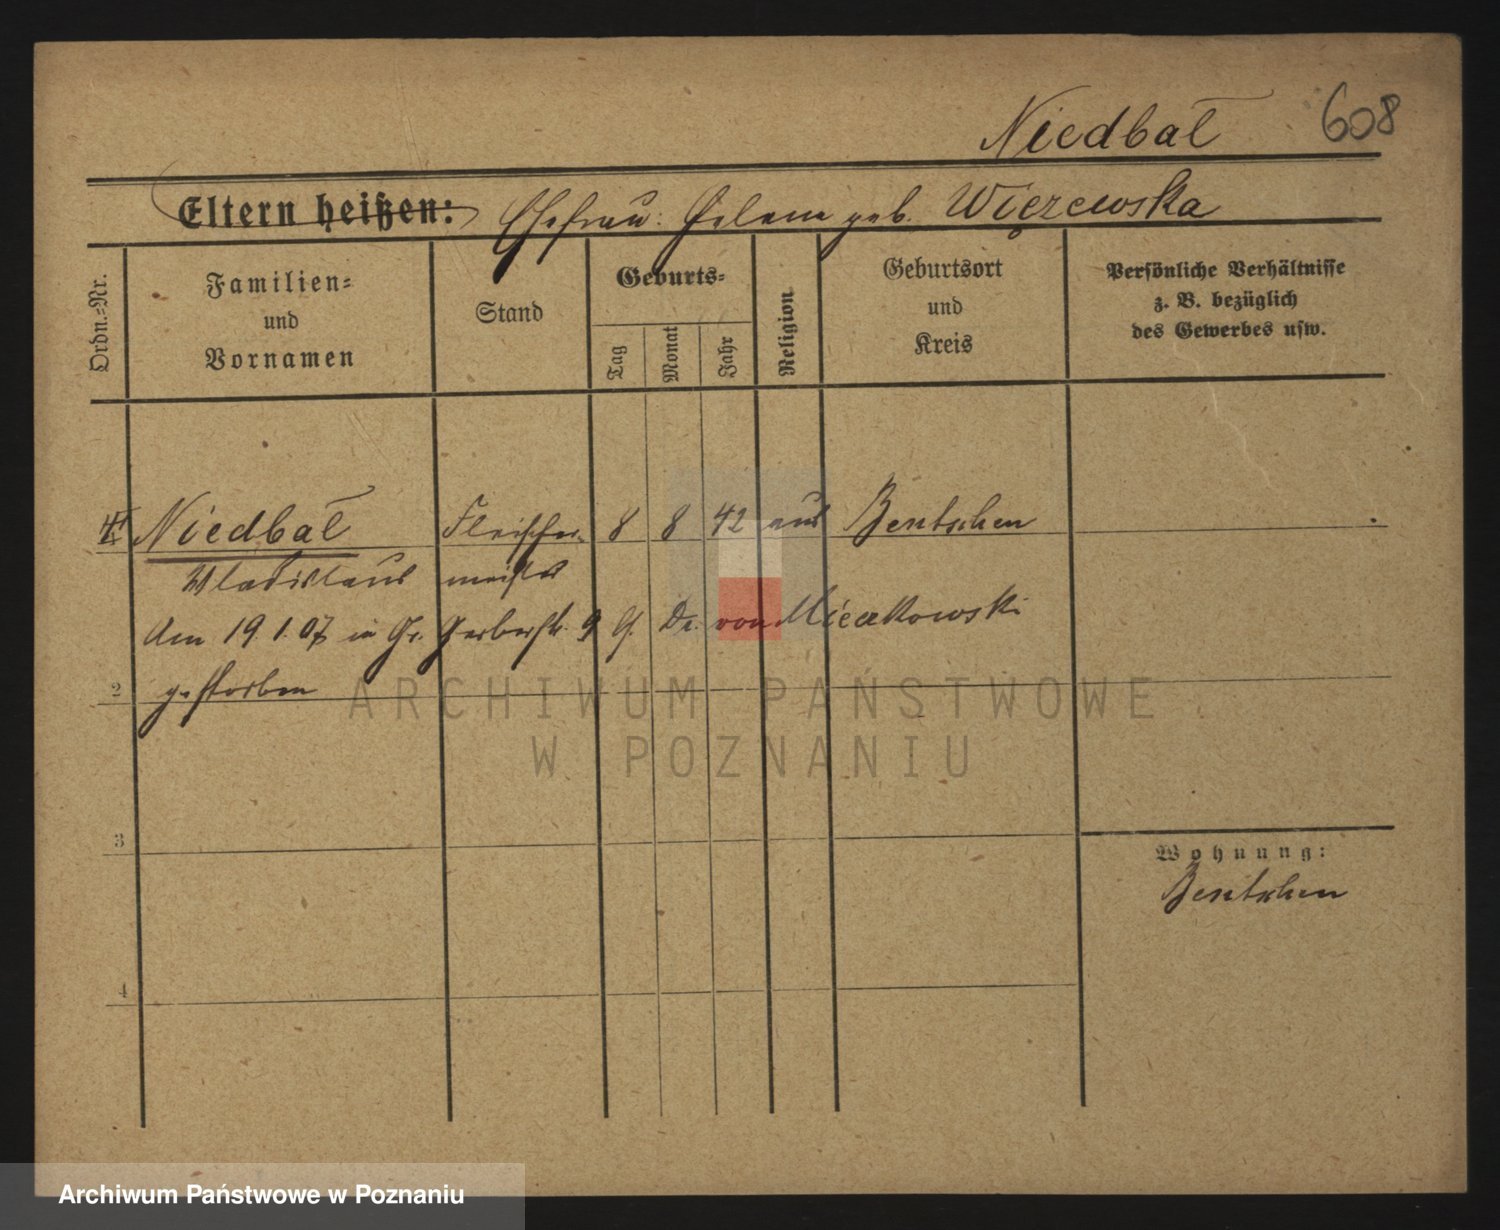 Niedbał 608
Eltern heißen: Ehefrau: Helene geb. Więzewska
Ordn.-Nr.
Familien-
und
Vornamen
Stand
Geburts-
Tag
Monat
Jahr
Religion
Geburtsort
und
Kreis
Persönliche Verhältnisse
z. B. bezüglich
des Gewerbes usw.
Niedbał Fleischer- 8 8 42 aus Bentschen
Wladislaus meister
Am 19.1.07 in Gr. Gerberstr. 9 Dr. von
gestorben
2
3
4
Wohnung:
Bentschen
ARCHIWUM PAŃSTWOWE
W POZNANIU
Archiwum Państwowe w Poznaniu